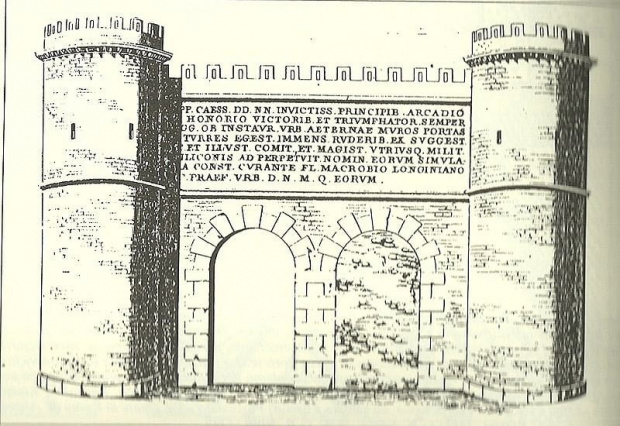 PP. CAESS. DD. NN. INVICTISS. PRINCIPIB. ARCADIO
HONORIO VICTORIB. ET TRIVMPHATOR. SEMPER
VG. OB INSTAVR. VRB. AETERNAE MVROS PORTAS
TVRRES EGEST. IMMENS. RVDERIB. EX SVGGEST.
ET ILLVST. COMIT. ET. MAGIST. VTRIVSQ. MILIT.
ILICONIS AD PERPETVIT. NOMIN. EORVM SIMVLA
A CONST. CVRANTE FL. MACROBIO LONGINIANO
PRAEF. VRB. D. N. M. Q. EORVM.